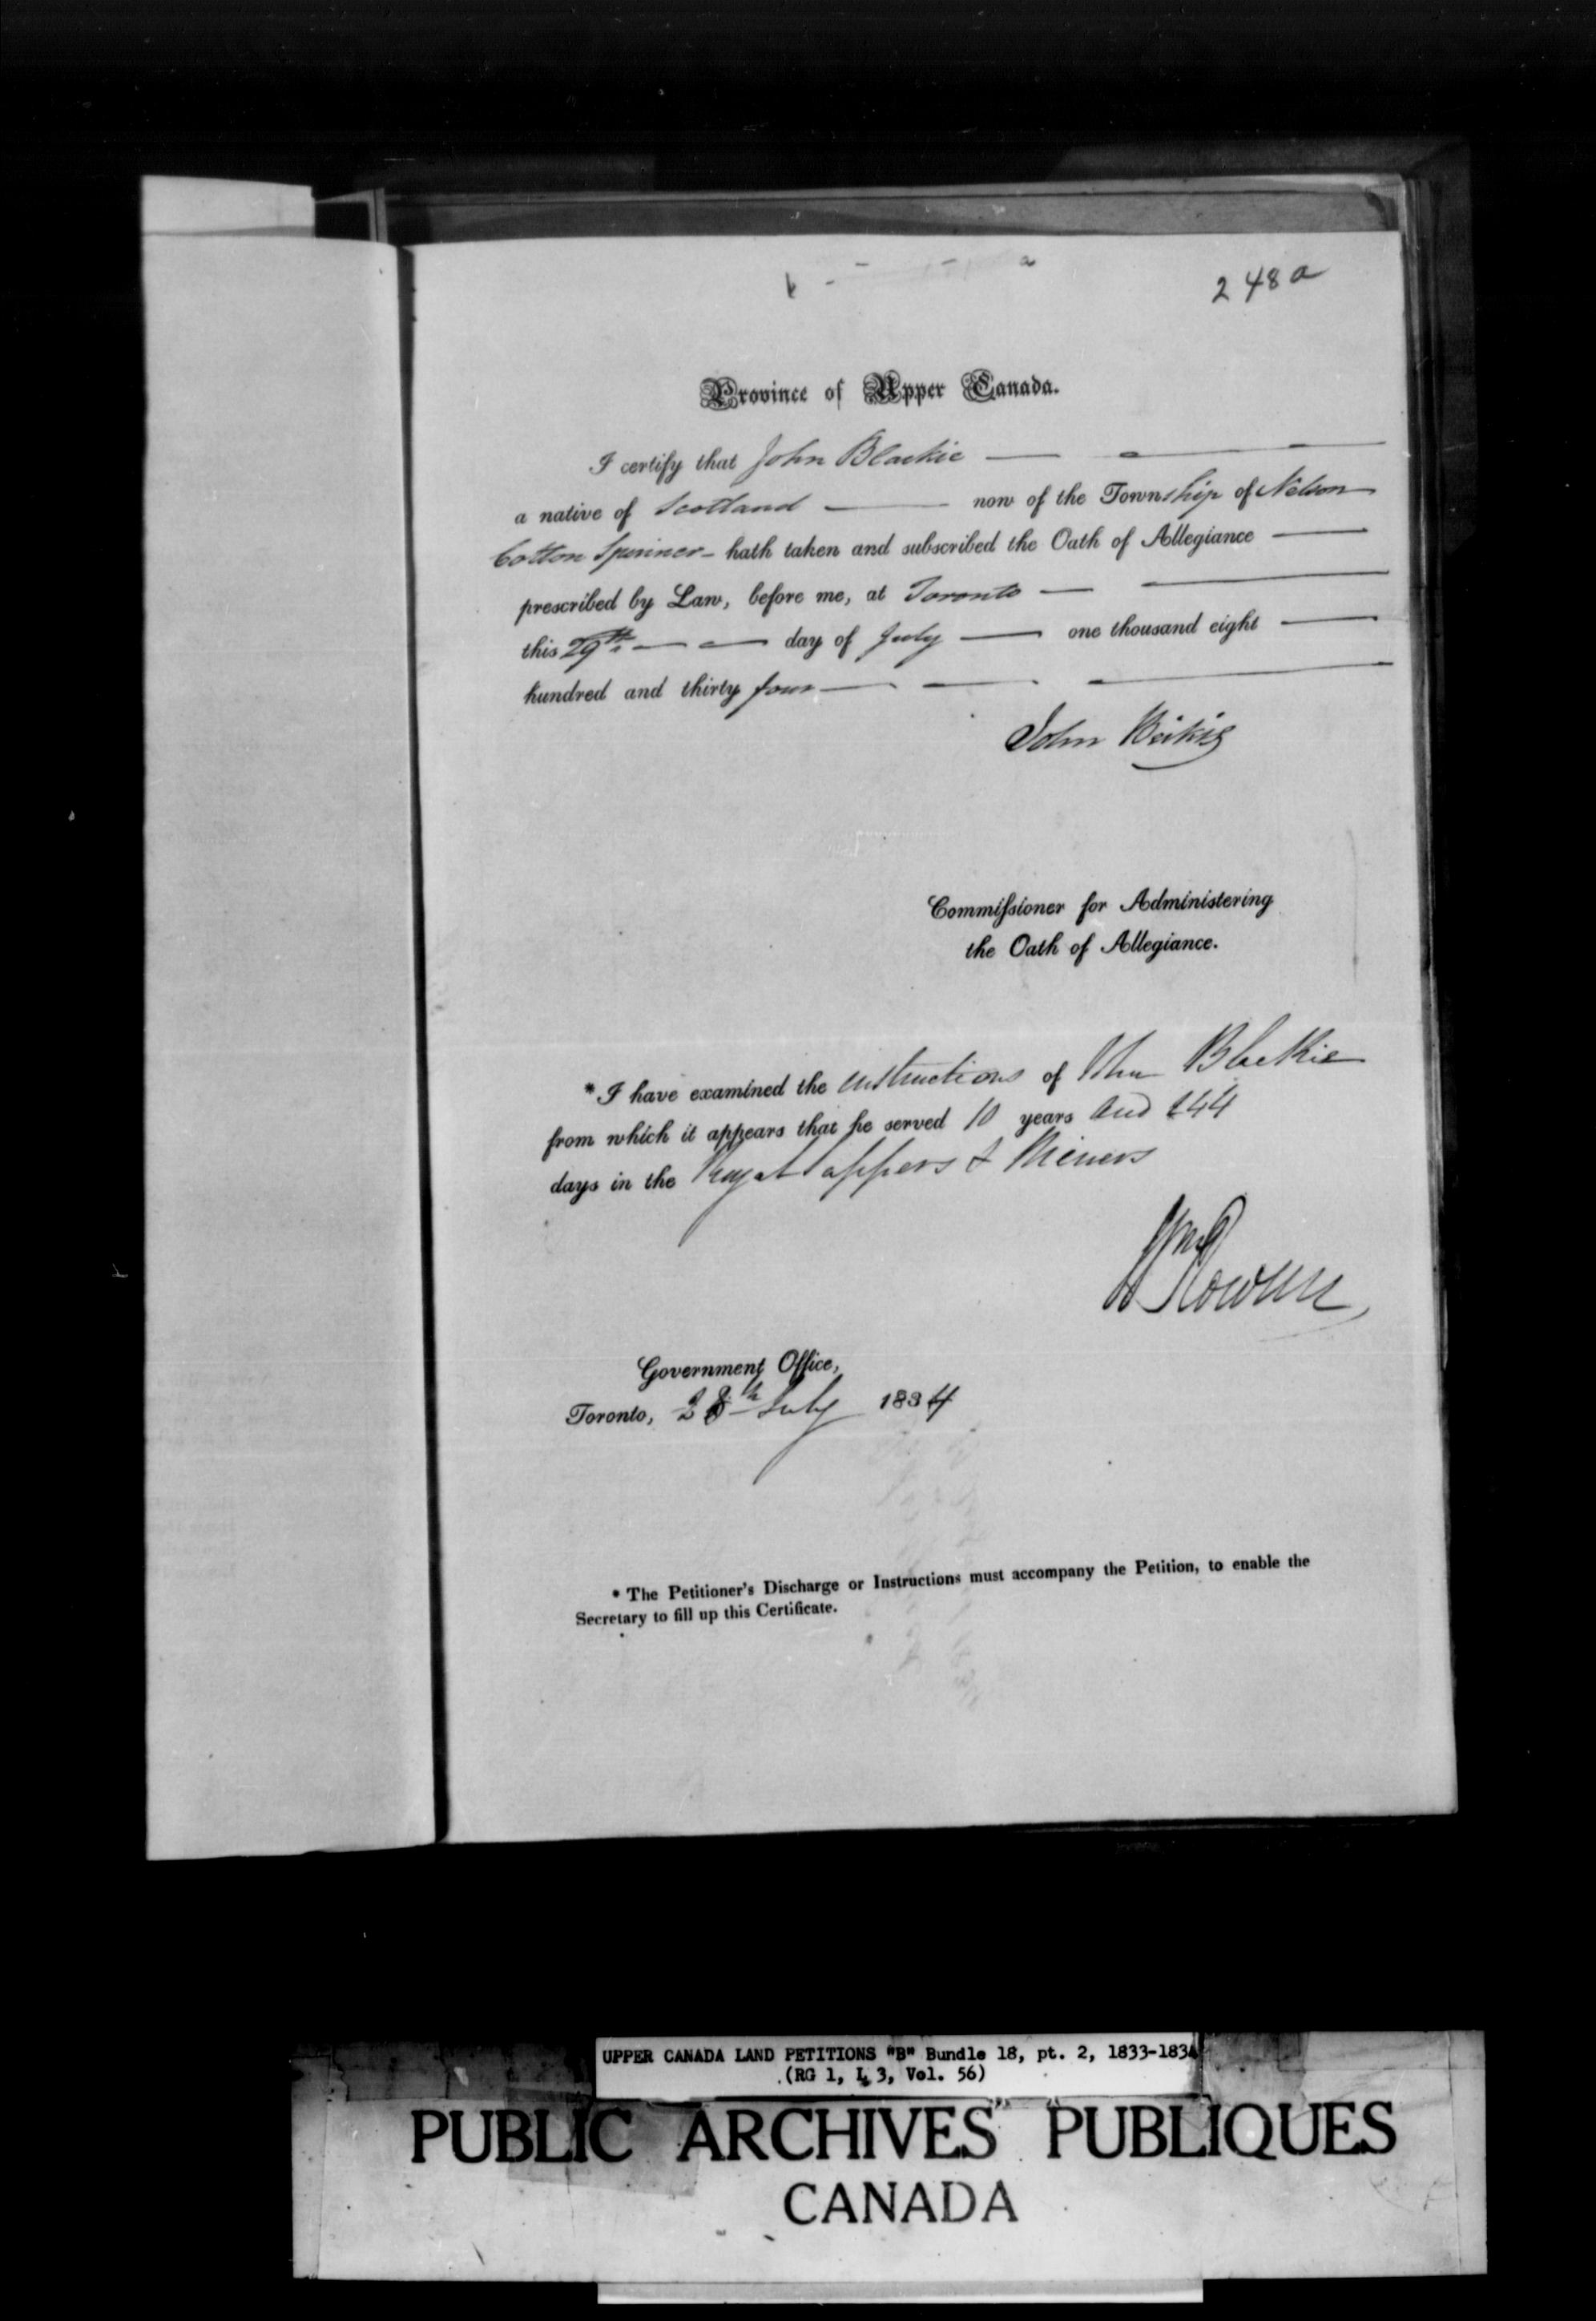 248a
Province of Upper Canada.
I certify that John Blackie
a native of Scotland now of the Township of Nelson
Cotton Spinner - hath taken and subscribed the Oath of Allegiance
prescribed by Law, before me, at Toronto
this 29th day of July one thousand eight
hundred and thirty four
John Beikie
Commissioner for Administering
the Oath of Allegiance.
* I have examined the Instructions of John Blackie
from which it appears that he served 10 years and 244
days in the Royal Sappers & Miners
Wm Rowan
Government Office,
Toronto, 28th July 1834
* The Petitioner's Discharge or Instructions must accompany the Petition, to enable the
Secretary to fill up this Certificate.
UPPER CANADA LAND PETITIONS "B" Bundle 18, pt. 2, 1833-1834
(RG 1, L 3, Vol. 56)
PUBLIC ARCHIVES PUBLIQUES
CANADA